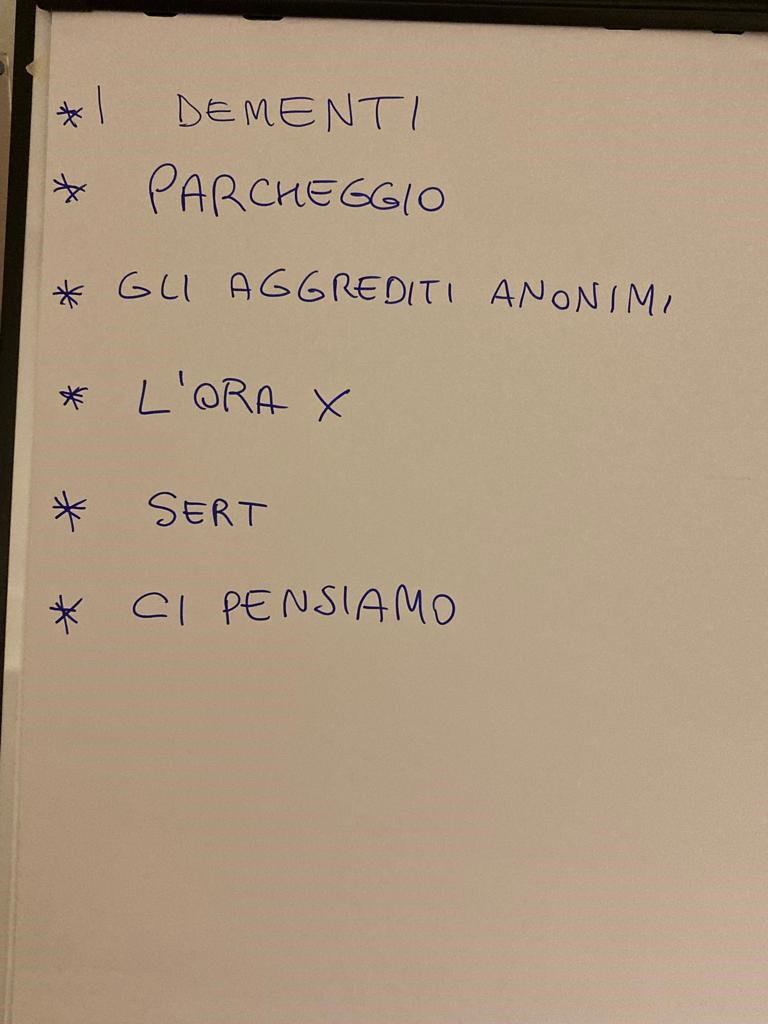 * I DEMENTI
* PARCHEGGIO
* GLI AGGREDITI ANONIMI
* L'ORA X
* SERT
* CI PENSIAMO